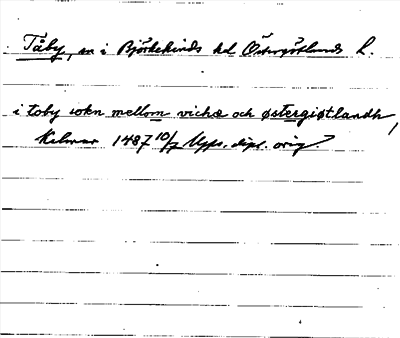 Tåby, sn i Björkekinds hd Östergötlands L.
i toby sokn mellom vichæ och østergiøtlandh,
Kalmar 1487 10/7 Upps. dipl. orig